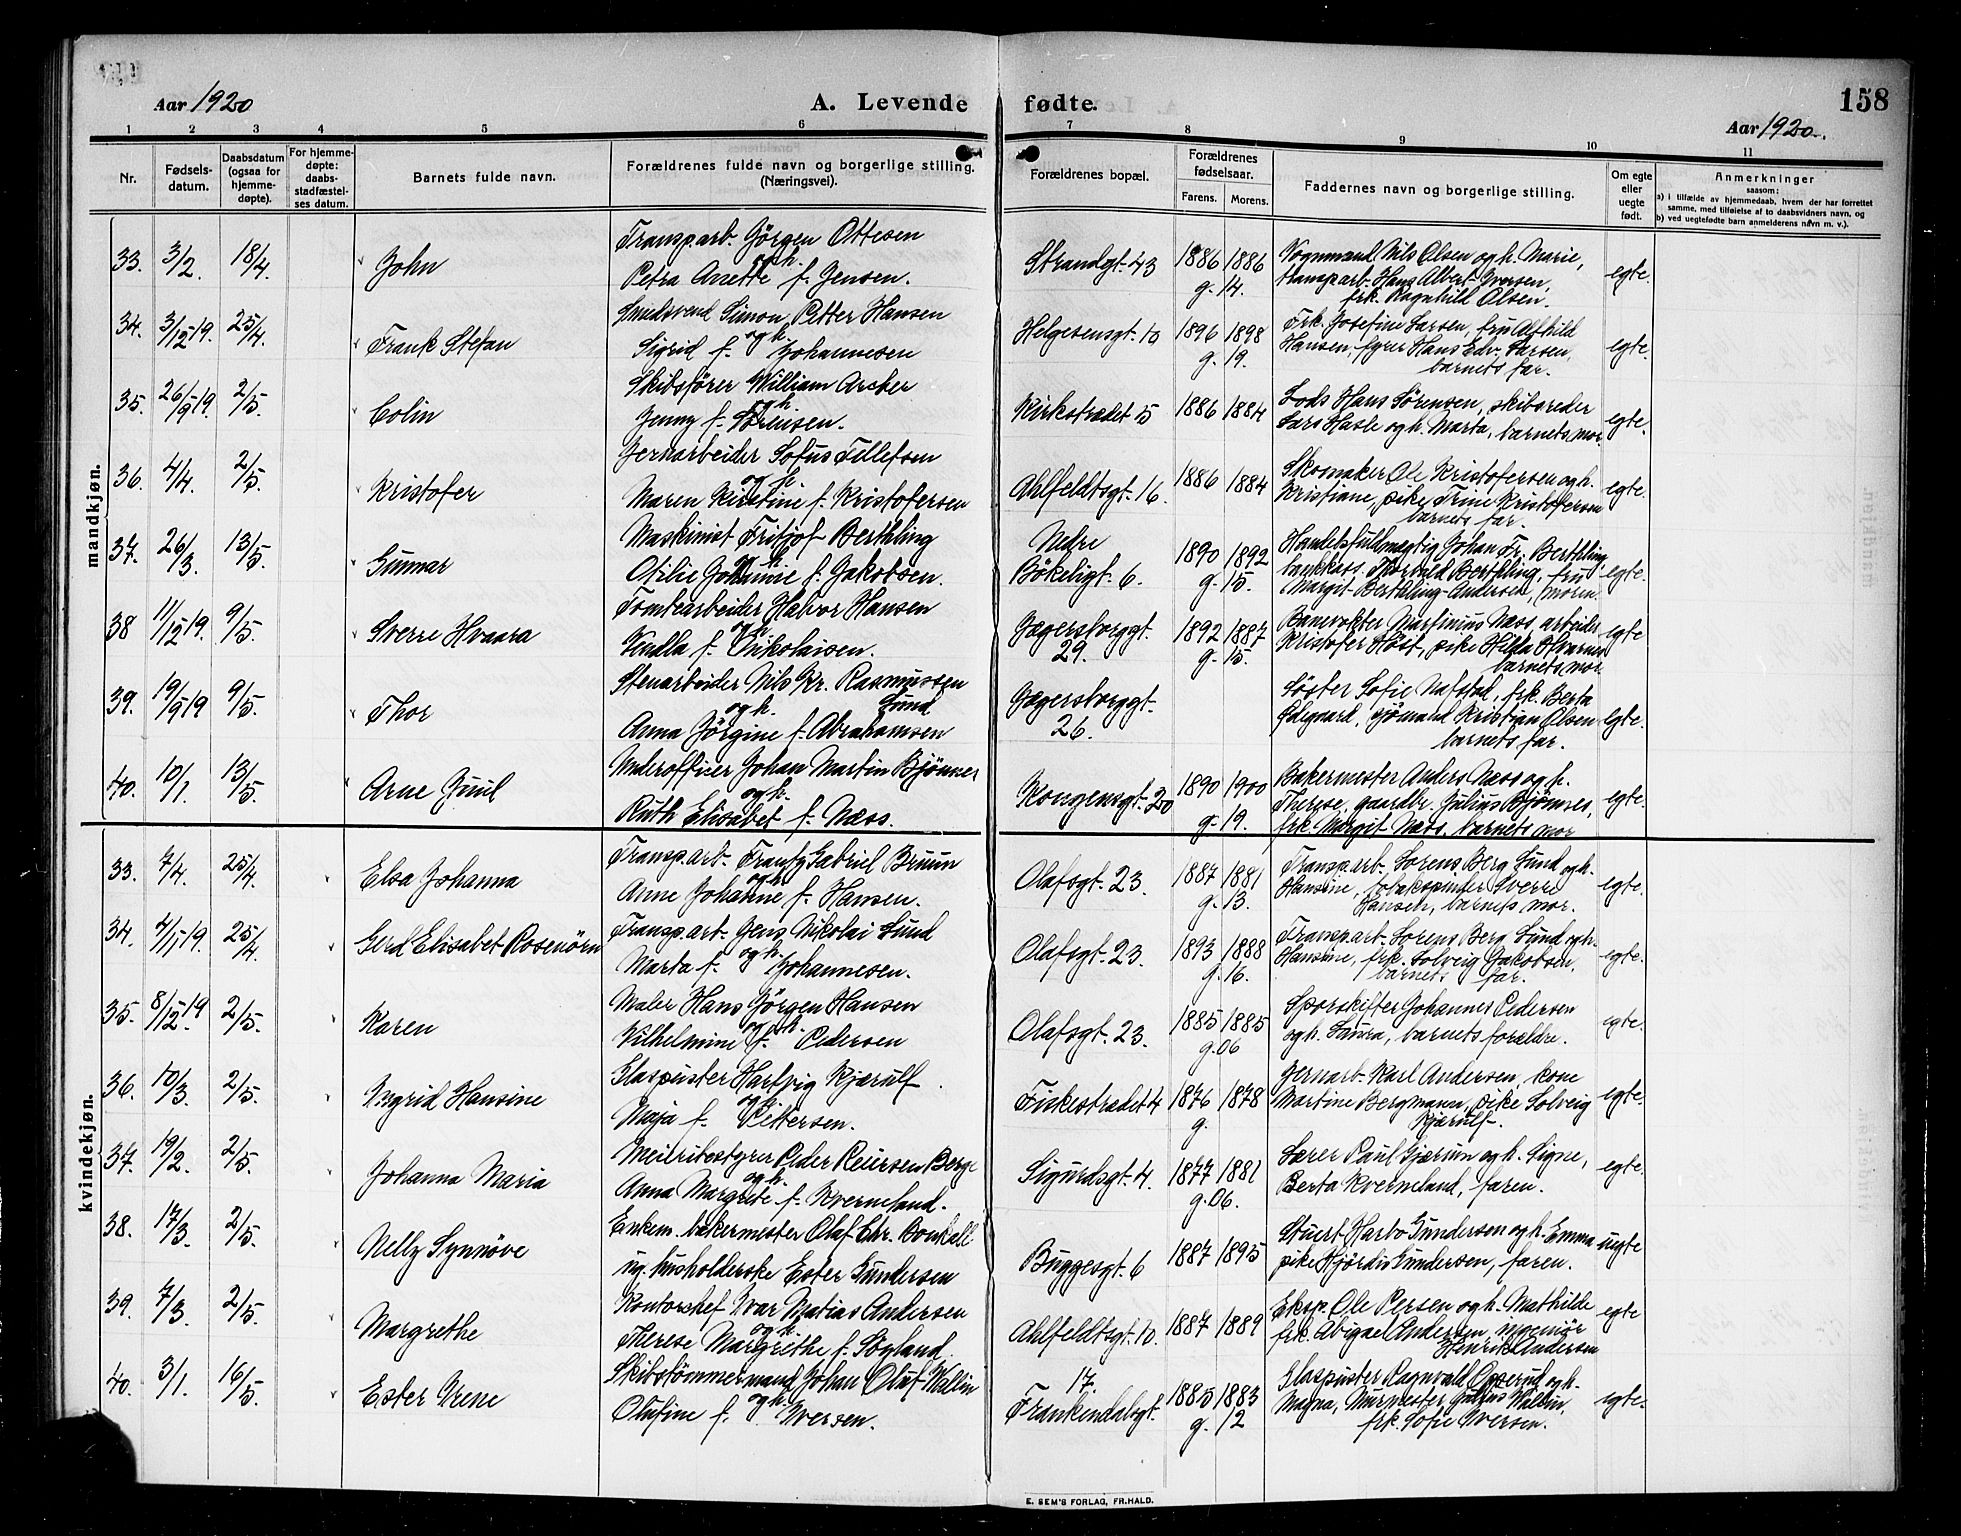 Aar 1920
A. Levende
fødte.
Aar 1920.
158
1 2 3 4 5 6 7 8 9 10 11
Nr.
Fødsels-
datum.
Daabsdatum
(ogsaa for
hjemme-
døpte).
For hjemme-
døpte:
daabs-
stadfæstel-
ses datum.
Barnets fulde navn.
Forældrenes fulde navn og borgerlige stilling.
(Næringsvei).
Forældrenes bopæl.
Forældrenes
fødselsaar.
Farens. Morens.
Faddernes navn og borgerlige stilling.
Om egte
eller
uegte
født.
Anmerkninger
saasom:
a) i tilfælde av hjemmedaab, hvem der har forrettet
samme, med tilføielse af to daabsvidners navn, og
b) ved uegtefødte barn anmelderens navn m. v.).
mandkjøn.
33. 3/2. 18/4. John
Transp.arb. Jörgen Ottesen
og h.
Petra Anette f. Jensen.
Strandgt. 43 1886 1886
g. 14.
Vognmand Nils Olsen og h. Marie,
transp.arb. Hans Albert Iversen,
frk. Ragnhild Olsen.
egte.
34. 3/12 19. 25/4. Frank Stefan
Smedsvend Simon Petter Hansen
og h.
Sigrid f. Johannesen
Helgesensgt. 10 1896 1898
g. 19.
Frk. Josefine Larsen, fru Alfhild
Hansen, fyrer Hans Edv. Larsen,
barnets far.
egte.
35. 26/9 19. 2/5. Colin
Skibsförer William Archer
og h.
Jenny f. Sörensen.
Kirkestrædet 5 1886 1884
Lods Hans Sörensen, skibsreder
Lars Hasle og h. Marta, barnets mor
egte.
36. 4/4. 2/5. Kristofer
Jernarbeider Sofus Tillefsen
og h.
Maren Kirstine f. Kristofersen
Ahlfeldtsgt. 16. 1886 1884
Skomaker Ole Kristofersen og h.
Kristiane, pike Trine Kristofersen
barnets far.
egte.
37. 26/3. 13/5. Gunnar
Maskinist Fritjof Berthling
og h.
Otilie Johanne f. Jakobsen.
Nedre
Bökeligt. 6. 1890 1892
g. 15.
Handelsfuldmægtig Johan Fr. Berthling,
bankkass. Thorvald Berthling, fru
Margit Berthling-Andersen, (moren
egte.
38 11/12 19. 9/5. Sverre Hvaara
Tomtearbeider Halvor Hansen
og h.
f. Nikolaisen.
Jægersborggt.
29. 1892 1887
g. 15.
Banevokter Martinius Næss, arbeider
Kristofer Höst, pike Hilda
barnets mor.
egte
39. 19/9 19 9/5. Thor
Stenarbeider Nils Kr. Rasmussen
og h. Lund
Anna Jörgine f. Abrahamsen
Jægersborggt.
26.
Söster Sofie Nafstad, frk. Berta
Ödegaard, sjömand Kristian Olsen
barnets far.
egte.
40. 10/1. 13/5. Arne Juul
Underofficer Johan Martin Bjönnes
og h.
Ruth Elisabet f. Næss.
Kongensgt. 20 1890 1900
g. 19.
Bakermester Anders Næss og h.
Therese, gaardbr. Julius Bjönnes,
frk. Margit Næss, barnets mor
egte.
kvindekjøn.
33. 7/4. 25/4. Elsa Johanna
Transp.arb. Frantz Gabriel Bruun
og h.
Anne Johanne f. Hansen.
Olafsgt. 23. 1887 1881
g. 13.
Transp.arb. Lorens Berg Lund og h.
Hansine, tobakspinter Sverre
Hansen, barnets mor.
egte.
34. 4/11 19. 25/4. Gerd Elisabet Rosenörn
Transp.arb. Jens Nikolai Lund
og h.
Marta f. Johannesen.
Olafsgt. 23. 1893 1888
g. 16.
Transp.arb. Lorens Berg Lund og h.
Hansine, frk. Solveig Jakobsen,
barnets far.
egte.
35. 8/12 19 2/5. Karen
Maler Hans Jörgen Hansen
og h.
Vilhelmine f. Pedersen
Olafsgt. 23. 1885 1885
g. 06
Sporskifter Johannes Pedersen
og h. Laura, barnets forældre.
egte.
36. 10/3. 2/5. Ingrid Hansine
Glaspuster Hartvig Kjærulf
og h.
Maja f. Pettersen.
Fiskestrædet 4 1876 1878
g.
Jernarb. Karl Andersen, kone
Martine Bergmann, pike Solveig
Kjærulf.
egte.
37. 19/2. 2/5. Johanna Maria
Meieribestyrer Peder Reiersen Berge
og h.
Anna Margrete f. Kverneland.
Sigurdsgt. 4. 1877 1881
g. 06.
Lærer Paul Gjærum og h. Signe,
Berta Kverneland, faren.
egte.
38. 17/3. 2/5. Nelly Synnöve
Enkem. bakermester Olaf Chr. Bonkall
ug. husholderske Ester Gundersen
Buggesgt. 6 1887 1895
Stuert Harbo Gundersen og h. Emma
pike Hjördis Gundersen, faren.
uegte
39. 7/3. 2/5. Margrethe
Kontorchef Ivar Matias Andersen
og h.
Therese Margrethe f. Sögland.
Ahlfeldtsgt. 10. 1887 1889
Eksp. Ole Persen og h. Mathilde
frk. Abigael Andersen, ingeniör
Henrik Andersen
egte
40. 3/1. 16/5. Ester Irene
Skibstömmermand Johan Oluf Wallin
og h.
Olufine f. Iversen.
17.
Frankendalsgt. 1885 1883
g. 12
Glaspuster Ragnvald Opperud og h.
Magna, Murmester Julius Wallin,
frk. Sofie Iversen.
egte.
E. SEM'S FORLAG, FR.HALD.